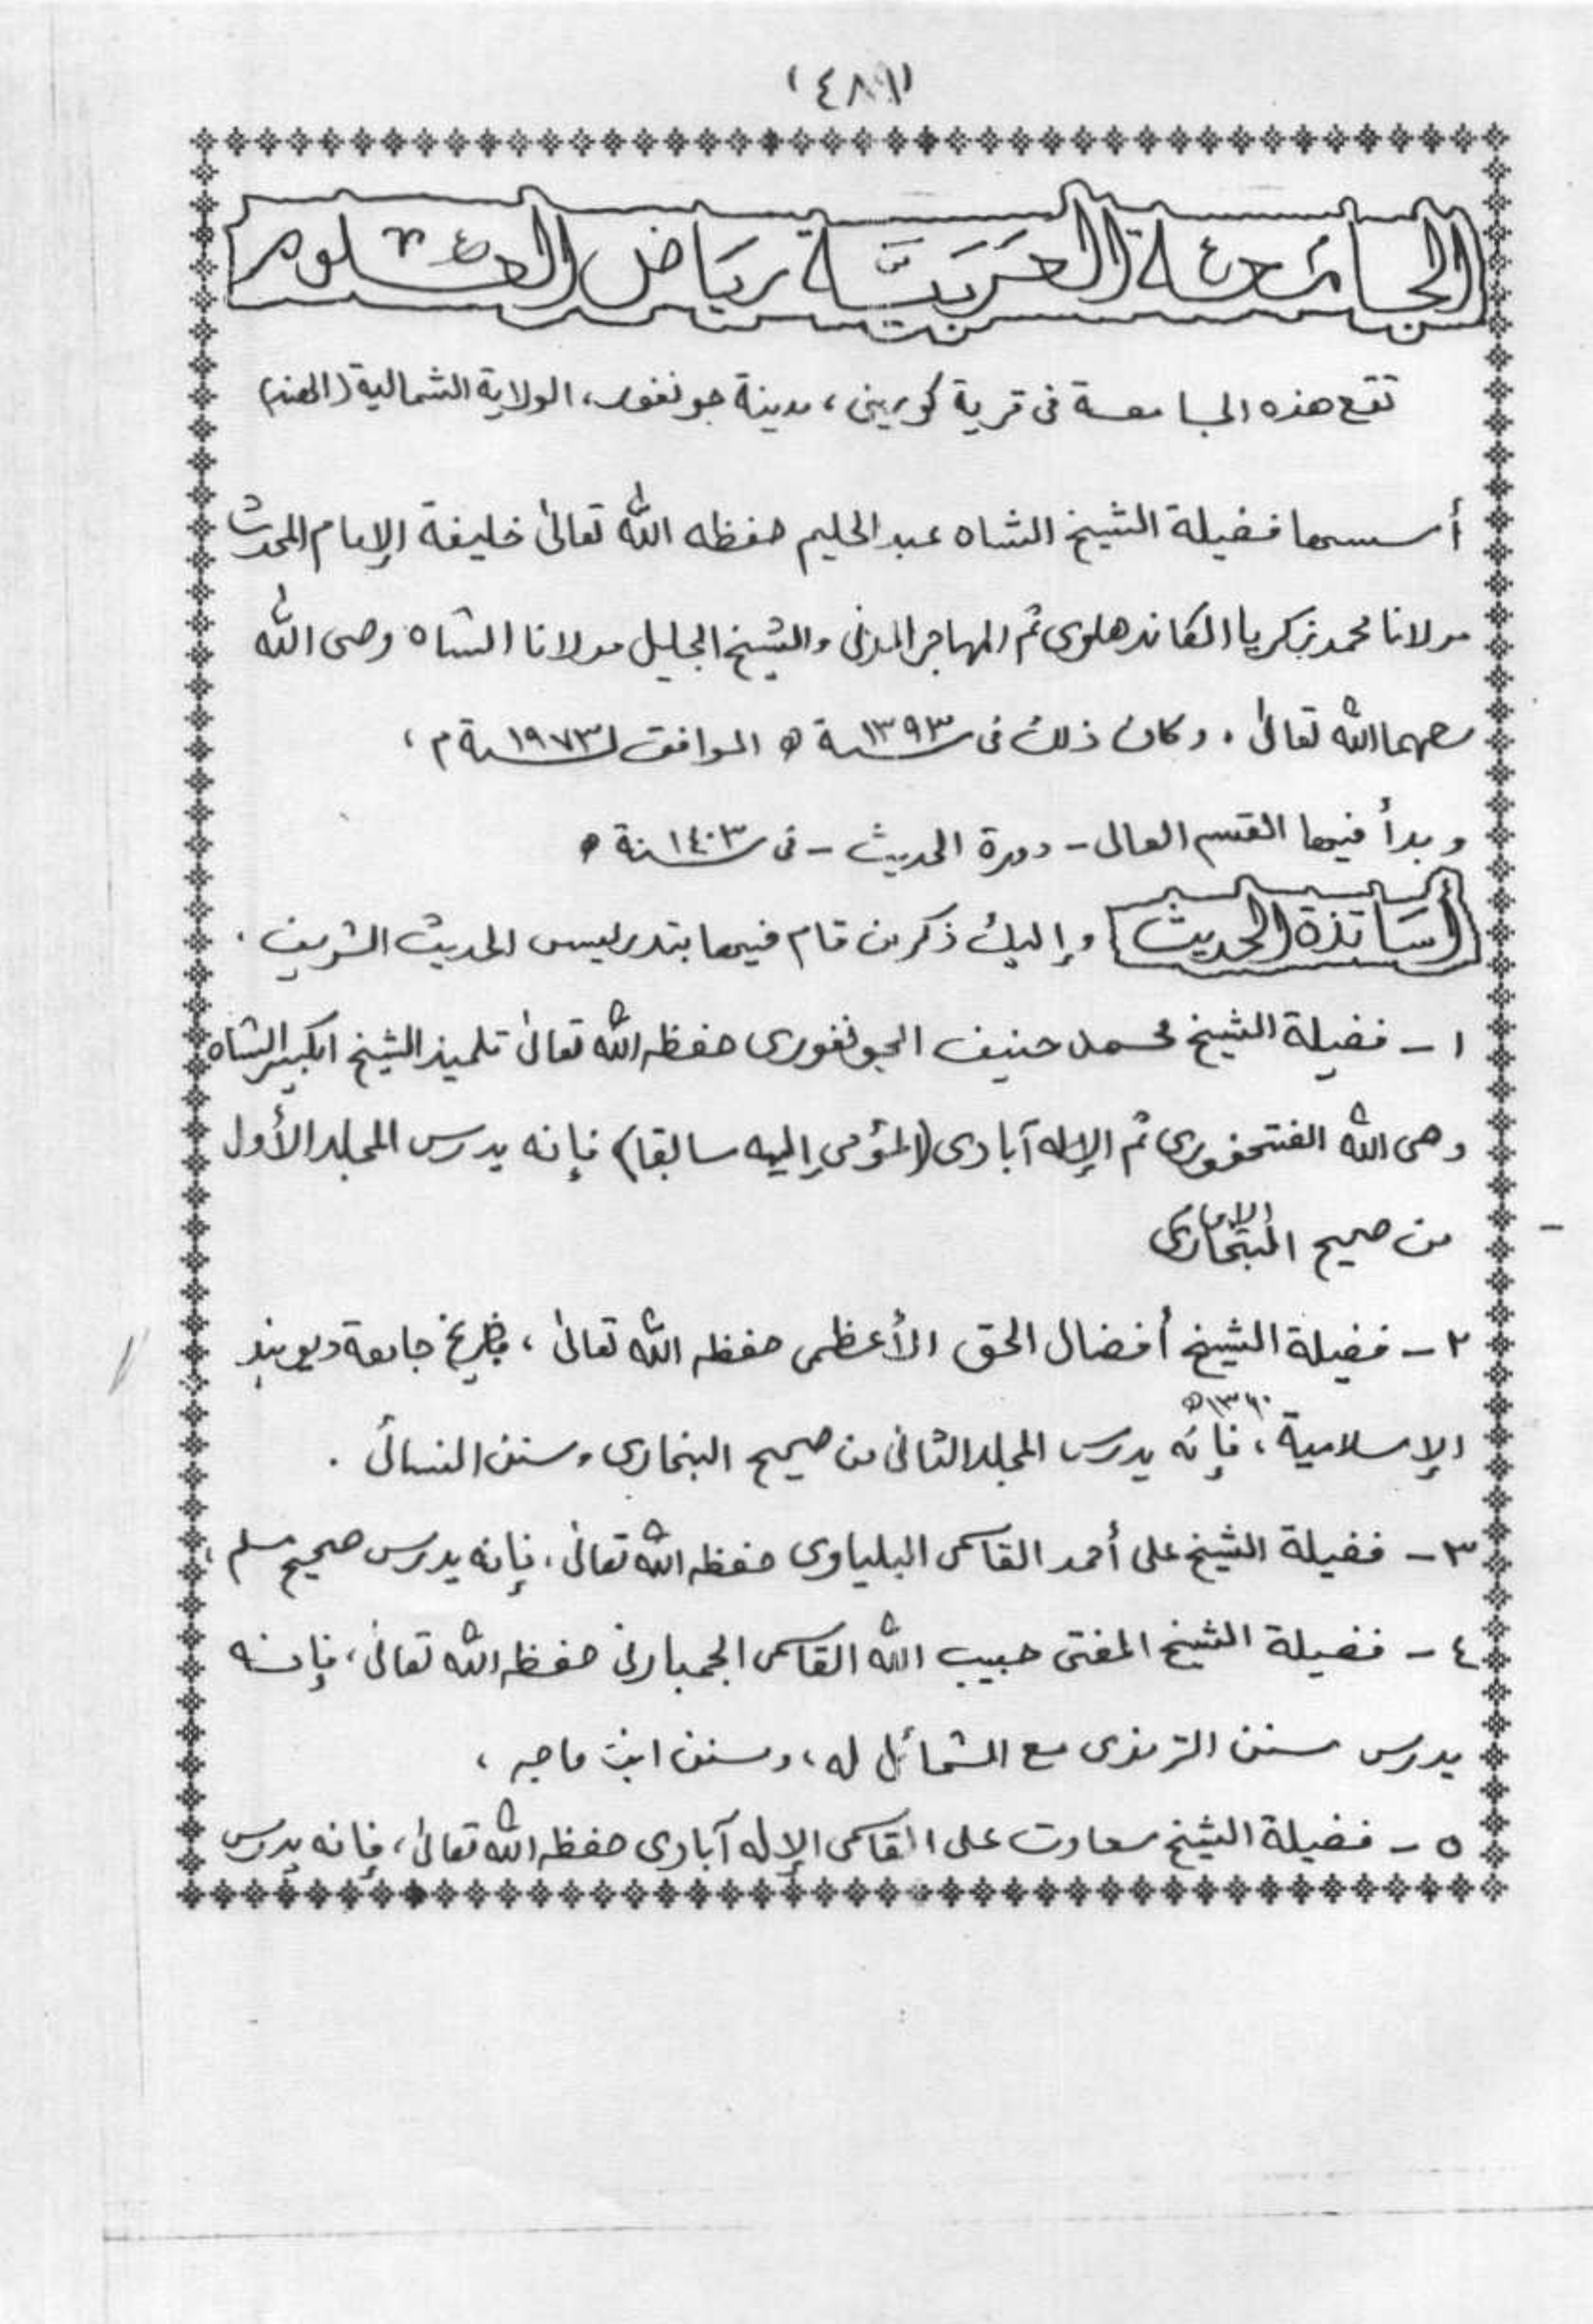 الجامعة العربية رياض العلوم
تقع هذه الجامعة فى قرية كورينى، مدينة جونفور، الولاية الشمالية (الهند)
أسسها فضيلة الشيخ الشاه عبد الحليم حفظه الله تعالىٰ خليفة الإمام المحدث
مولانا محمد زكريا الكاندهلوى ثم المهاجر المدنى والشيخ الجليل مولانا الشاه وصى الله
رحمهما الله تعالىٰ . وكان ذلك فى سنة ١٣٩٣ ھ الموافق لسنة ١٩٧٣ م ،
وبدأ فيها القسم العالى - دورة الحديث - فى سنة ١٤٠٣ ھ
أساتذة الحديث وإليك ذكر من قام فيها بتدريس الحديث الشريف .
١ - فضيلة الشيخ محمد حنيف الجونفورى حفظه الله تعالىٰ تلميذ الشيخ الكبير الشاه
وصى الله الفتحفورى ثم الإله آبادى (المؤمى إليه سابقا) فإنه يدرس المجلد الأول
من صحيح الإمام البخارى
٢ - فضيلة الشيخ أفضال الحق الأعظمى حفظه الله تعالىٰ ، خريج جامعة ديوبند
الإسلامية ١٣٦٠ھ ، فإنه يدرس المجلد الثانى من صحيح البخارى وسنن النسائى .
٣ - فضيلة الشيخ على أحمد القاسمى البلياوى حفظه الله تعالىٰ ، فإنه يدرس صحيح مسلم ،
٤ - فضيلة الشيخ المفتى حبيب الله القاسمى الجمبارنى حفظه الله تعالىٰ ، فإنه
يدرس سنن الترمذى مع الشمائل له ، وسنن ابن ماجه ،
٥ - فضيلة الشيخ سعادت على القاسمى الإله آبادى حفظه الله تعالىٰ ، فإنه يدرس